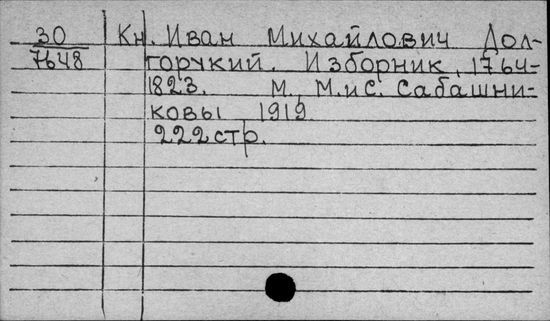 30 Кн. Иван Михайлович Дол-
7648 горукий. Изборник, 1764-
1823. М., М. и С. Сабашни-
ковы 1919
222 стр.